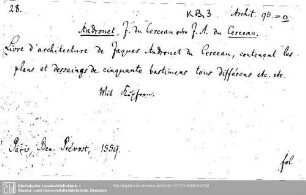 28.
K.B. 3 Archit. 98.
Androuet, J. du Cerceau oder J. A. du Cerceau.
Livre d'architecture de Jaques Androuet du Cerceau, contenant les
plans et dessaings de cinquante bastimens tous différens etc. etc.
Mit Kupfern.
Paris, Ben. Prévost, 1559.
fol
Sächsische Landesbibliothek -
Staats- und Universitätsbibliothek Dresden